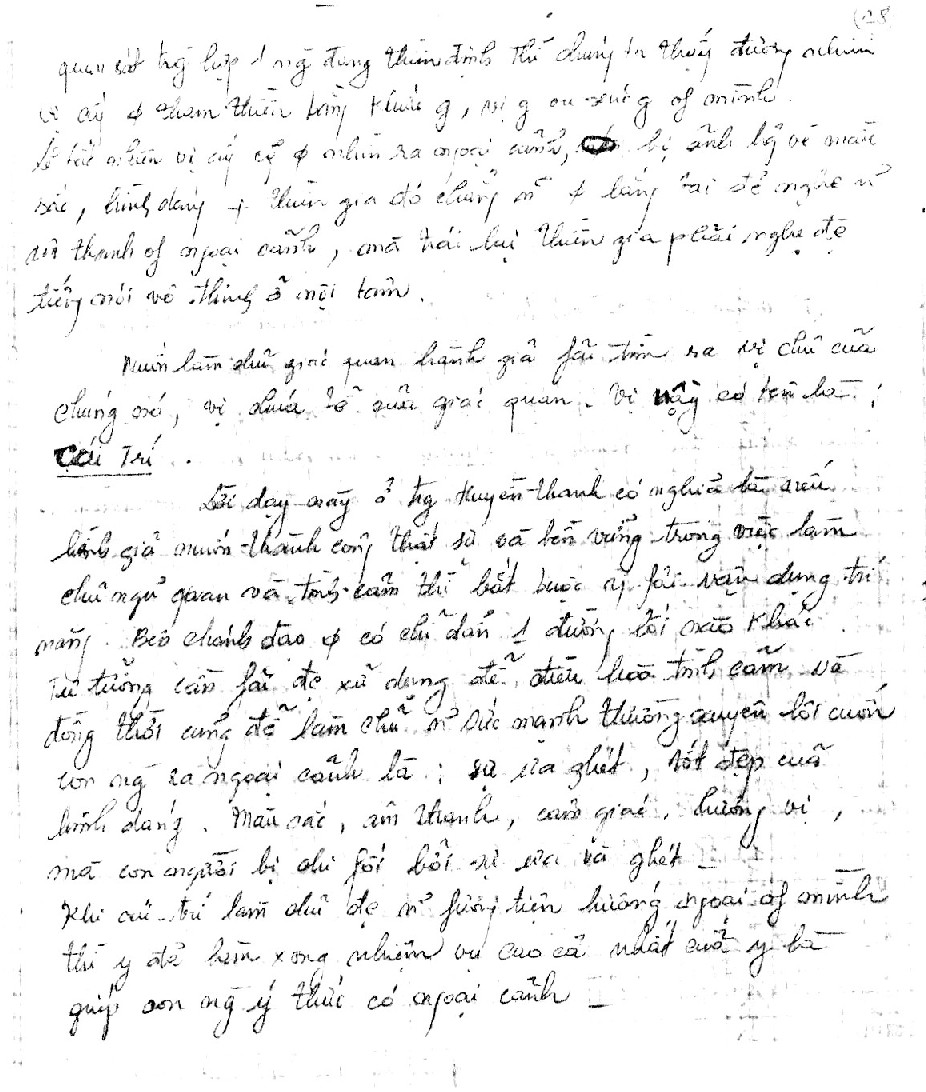 (28
quan sát trg hợp 1 ng đang thiền định thì chúng ta thấy đương nhiên
vị ấy ɸ tham thiền bằng khứu g, vị g or xúc g of mình
lẽ tất nhiên vị ấy cg ɸ nhìn ra ngoại cảnh, bị ảnh hg về màu
sắc, hình dáng + thiền gia đó chẳng ~ ɸ lắng tai để nghe ~
âm thanh of ngoại cảnh, mà trái lại thiền gia phải nghe đc
tiếng nói vô thinh ở nội tâm.
Muốn làm chủ giác quan hành giả fải tìm ra vị chủ của
chúng nó, vị chúa tể của giác quan. Vị nầy có tên là :
Cái Trí .
Lời dạy này ở trg Huyền-thanh có nghĩa là nếu
hành giả muốn thành công thật sự và bền vững trong việc làm
chủ ngũ quan và tình cảm thì bắt buộc y fải vận dụng trí
năng. Béo chánh đạo ɸ có chỉ dẫn 1 đường lối nào khác.
Tư tưởng cần fải đc xử dụng để điều hoà tình cảm và
đồng thời cũng để làm chủ ~ sức mạnh thường quyến lôi cuốn
con ng ra ngoại cảnh là : sự ưa ghét, tốt đẹp của
hình dáng. Màu sắc, âm thanh, cảm giác, hương vị,
mà con người bị chi fối bởi sự ưa và ghét _
Khi cái trí làm chủ đc ~ fương tiện hướng ngoại of mình
thì y đã làm xong nhiệm vụ cao cả nhất của y là
giúp con ng ý thức có ngoại cảnh _